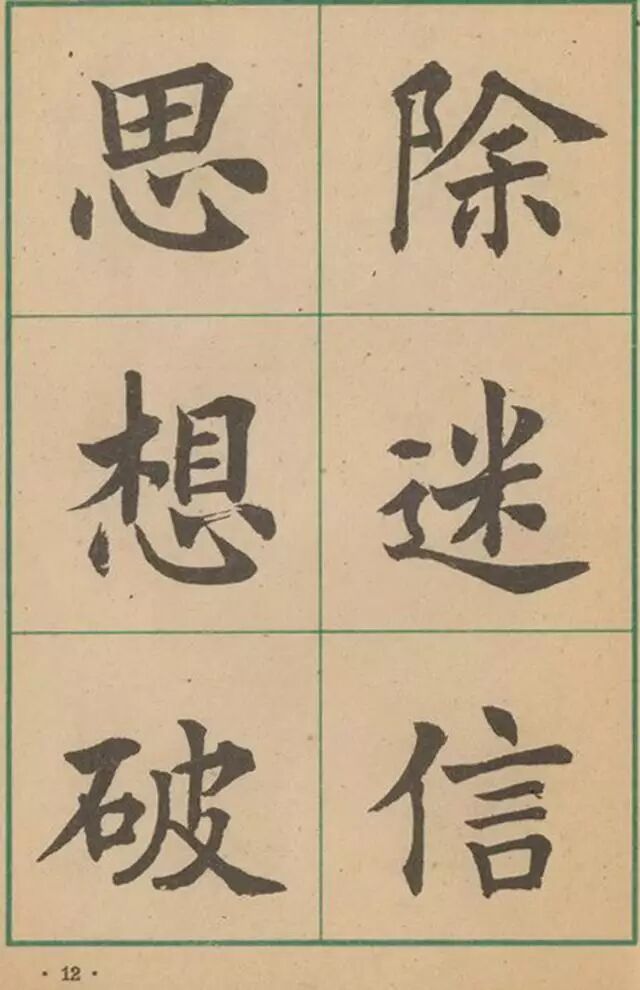 除迷信
思想破
· 12 ·